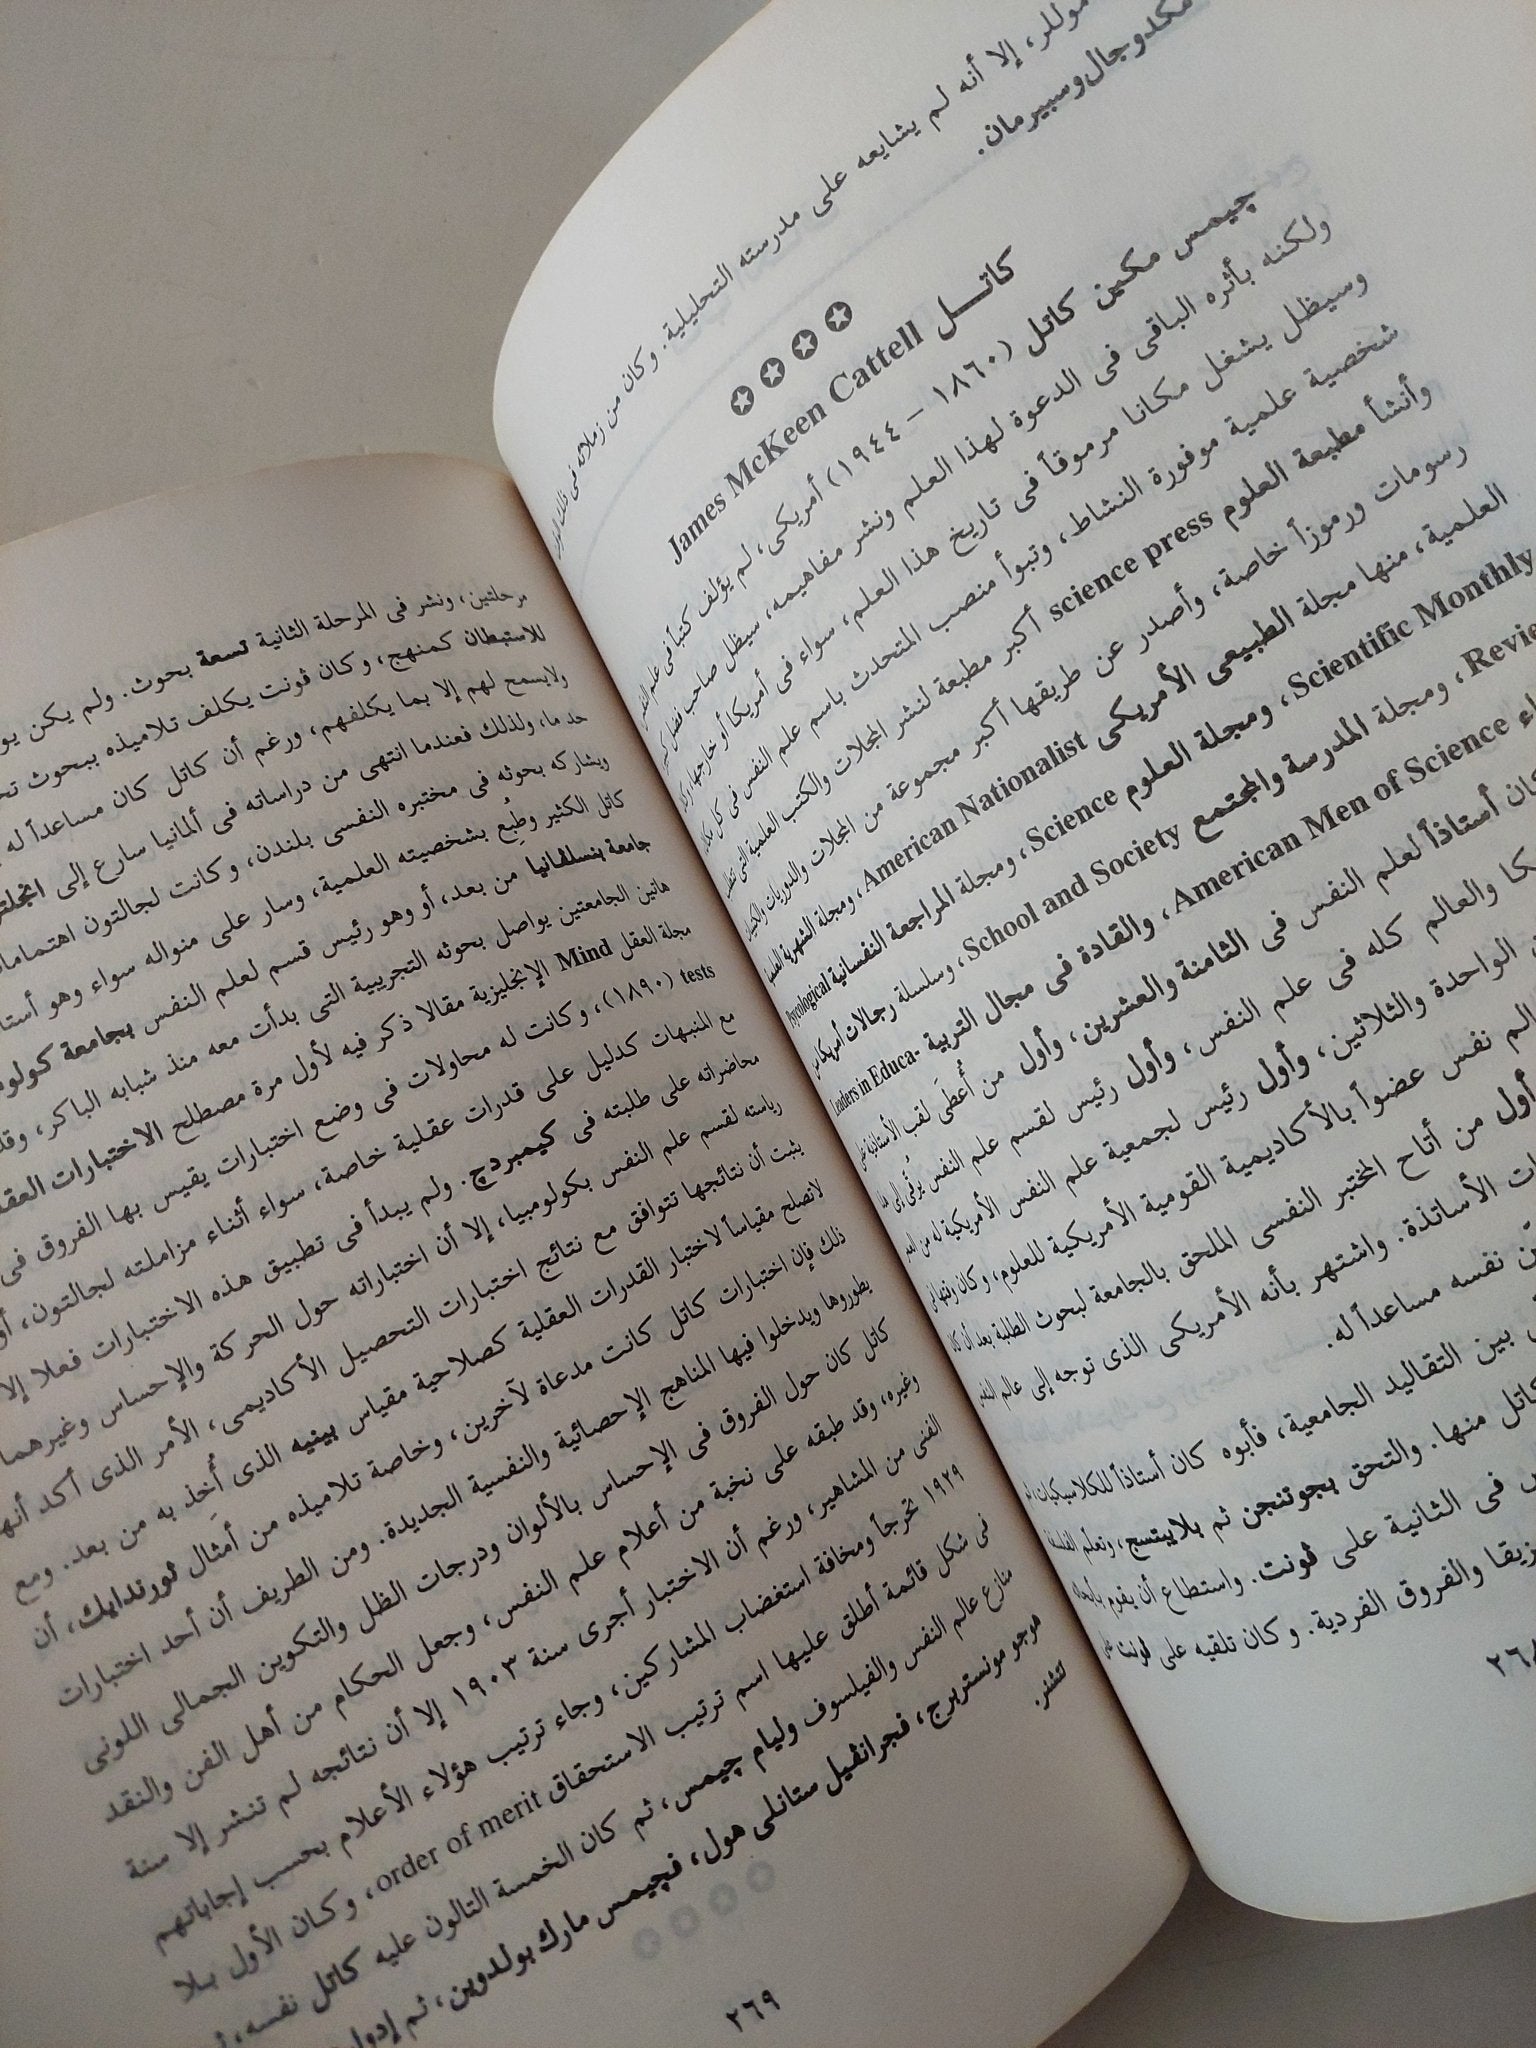 موللر، إلا أنه لم يشايعه على مدرسته التحليلية. وكان من زملائه فى
مكدوجال وسبيرمان.
كاتـــل James McKeen Cattell
چيمس مكين كاتل (١٨٦٠ – ١٩٤٤) أمريكى، لم يؤلف كتباً فى علم
ولكنه بأثره الباقى فى الدعوة لهذا العلم ونشر مفاهيمه، سيظل صاحب فضل كبير
وسيظل يشغل مكانا مرموقاً فى تاريخ هذا العلم، سواء فى أمريكا أو خارجها.
شخصية علمية موفورة النشاط، وتبوأ منصب المتحدث باسم علم النفس فى كل مكان
وأنشأ مطبعة العلوم science press أكبر مطبعة لنشر المجلات والكتب العلمية التى
رسومات ورموزاً خاصة، وأصدر عن طريقها أكبر مجموعة من المجلات والدوريات
العلمية، منها مجلة الطبيعى الأمريكى American Nationalist، ومجلة الشهرية
Scientific Monthly، ومجلة العلوم Science، ومجلة المراجعة النفسانية Psycological
Review، ومجلة المدرسة والمجتمع School and Society، وسلسلة رجالات أمريكا
American Men of Science، والقادة فى مجال التربية Leaders in Educa-
كان أستاذاً لعلم النفس فى الثامنة والعشرين، وأول من أُعطَى لقب الأستاذية
والعالم كله فى علم النفس، وأول رئيس لقسم علم النفس يُرقَّى إلى
الواحدة والثلاثين، وأول رئيس لجمعية علم النفس الأمريكية له من العمر
نفس عضواً بالأكاديمية القومية الأمريكية للعلوم، وكان
أول من أتاح المختبر النفسى الملحق بالجامعة لبحوث الطلبة بعد أن
الأساتذة. واشتهر بأنه الأمريكى الذى توجه إلى عالم النفس
نفسه مساعداً له.
بين التقاليد الجامعية، فأبوه كان أستاذاً للكلاسيكيات
كاتل منها. والتحق بجوتنجن ثم بلايبتسج، وتعلم الفلسفة
فى الثانية على ڤونت. واستطاع أن يقوم
والفروق الفردية. وكان تلقيه على ڤونت على
مرحلتين، ونشر فى المرحلة الثانية تسعة بحوث. ولم يكن
للاستبطان كمنهج، وكان ڤونت يكلف تلاميذه ببحوث
ولايسمح لهم إلا بما يكلفهم، ورغم أن كاتل كان مساعداً له
حد ما، ولذلك فعندما انتهى من دراساته فى ألمانيا سارع إلى
ويشاركه بحوثه فى مختبره النفسى بلندن، وكانت لجالتون
كاتل الكثير وطُبِع بشخصيته العلمية، وسار على منواله سواء وهو
جامعة بنسلڤانيا من بعد، أو وهو رئيس قسم لعلم النفس بجامعة
هاتين الجامعتين يواصل بحوثه التجريبية التى بدأت معه منذ شبابه الباكر،
مجلة العقل Mind الإنجليزية مقالا ذكر فيه لأول مرة مصطلح الاختبارات
tests (١٨٩٠)، وكانت له محاولات فى وضع اختبارات يقيس بها الفروق فى
مع المنبهات كدليل على قدرات عقلية خاصة، سواء أثناء مزاملته لجالتون،
محاضراته على طلبته فى كيمبردچ. ولم يبدأ فى تطبيق هذه الاختبارات فعلا إلا
رياسته لقسم علم النفس بكولومبيا، إلا أن اختباراته حول الحركة والإحساس وغيرهما
يثبت أن نتائجها تتوافق مع نتائج اختبارات التحصيل الأكاديمى، الأمر الذى أكد
لاتصلح مقياساً لاختبار القدرات العقلية كصلاحية مقياس بينيه الذى أُخِذ به من بعد. ومع
ذلك فإن اختبارات كاتل كانت مدعاة لآخرين، وخاصة تلاميذه من أمثال ثورندايك، أن
يطوروها ويدخلوا فيها المناهج الإحصائية والنفسية الجديدة. ومن الطريف أن أحد اختبارات
كاتل كان حول الفروق فى الإحساس بالألوان ودرجات الظل والتكوين الجمالى اللونى
وغيره، وقد طبقه على نخبة من أعلام علم النفس، وجعل الحكام من أهل الفن والنقد
الفنى من المشاهير، ورغم أن الاختبار أجرى سنة ١٩٠٣ إلا أن نتائجه لم تنشر إلا سنة
١٩٢٩ تحرجاً ومخافة استغضاب المشاركين، وجاء ترتيب هؤلاء الأعلام بحسب إجاباتهم
فى شكل قائمة أطلق عليها اسم ترتيب الاستحقاق order of merit، وكان الأول بلا
منازع عالم النفس والفيلسوف وليام چيمس، ثم كان الخمسة التالون عليه كاتل نفسه،
هوجو مونستربرج، فجرانڤيل ستانلى هول، فچيمس مارك بولدوين، ثم
تتشنر.
٢٦٩